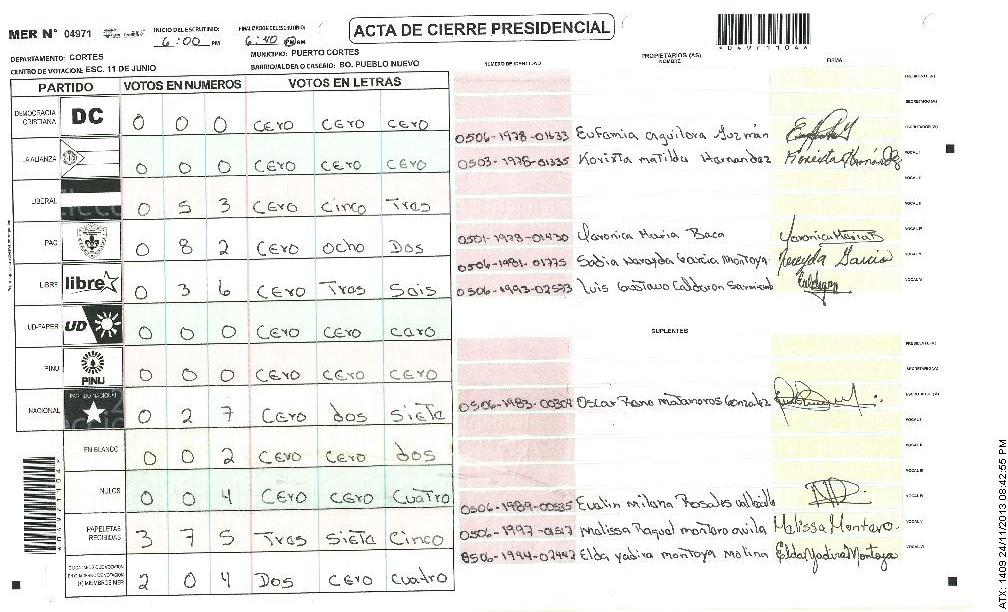 MER N° 04971
INICIO DEL ESCRUTINIO: 6:00 PM
FINALIZACION DEL ESCRUTINIO: 6:40 PM AM
ACTA DE CIERRE PRESIDENCIAL
DEPARTAMENTO: CORTES
MUNICIPIO: PUERTO CORTES
CENTRO DE VOTACION: ESC. 11 DE JUNIO
BARRIO/ALDEA O CASERIO: BO. PUEBLO NUEVO
NUMERO DE IDENTIDAD
PROPIETARIOS (AS)
NOMBRE
FIRMA
PARTIDO VOTOS EN NUMEROS VOTOS EN LETRAS
DEMOCRACIA CRISTIANA DC 0 0 0 CERO CERO CERO
LA ALIANZA 0 0 0 CERO CERO CERO
LIBERAL 0 5 3 CERO CINCO TRES
PAC 0 8 2 CERO OCHO DOS
LIBRE libre 0 3 6 CERO TRES SEIS
UD-FAPER UD 0 0 0 CERO CERO CERO
PINU PINU 0 0 0 CERO CERO CERO
NACIONAL PARTIDO NACIONAL 0 2 7 CERO dos SIETE
EN BLANCO 0 0 2 CERO CERO dos
NULOS 0 0 4 CERO CERO CUATRO
PAPELETAS RECIBIDAS 3 7 5 TRES SIETE CINCO
2 0 4 DOS CERO CUATRO
PRESIDENTE (A)
SECRETARIO (A)
0506-1978-01633 Eufamia Aguilera Guzmán ESCRUTADOR (A)
0503-1978-01335 Korixta matilda Hernandez VOCAL I
VOCAL II
0501-1978-01430 Veronica Maria Baca VOCAL IV
0506-1981-01775 Sadia Nereyda Garcia Montoya Nereyda Garcia VOCAL V
0506-1993-02593 Luis Gustavo Calderon Sarmiento
SUPLENTES
PRESIDENTE (A)
SECRETARIO (A)
0506-1983-00304 Oscar Rene Matamoros Gonzalez ESCRUTADOR (A)
VOCAL I
VOCAL II
VOCAL III
0506-1989-00585 Evelin Milena Rosales VOCAL IV
0506-1997- Melissa Raquel Montero avila Melissa Montero VOCAL V
0506-1994-02442 Elda Yadira montoya Molina Elda Yadira Montoya VOCAL VI
ATX: 1409 24/11/2013 08:42:55 PM